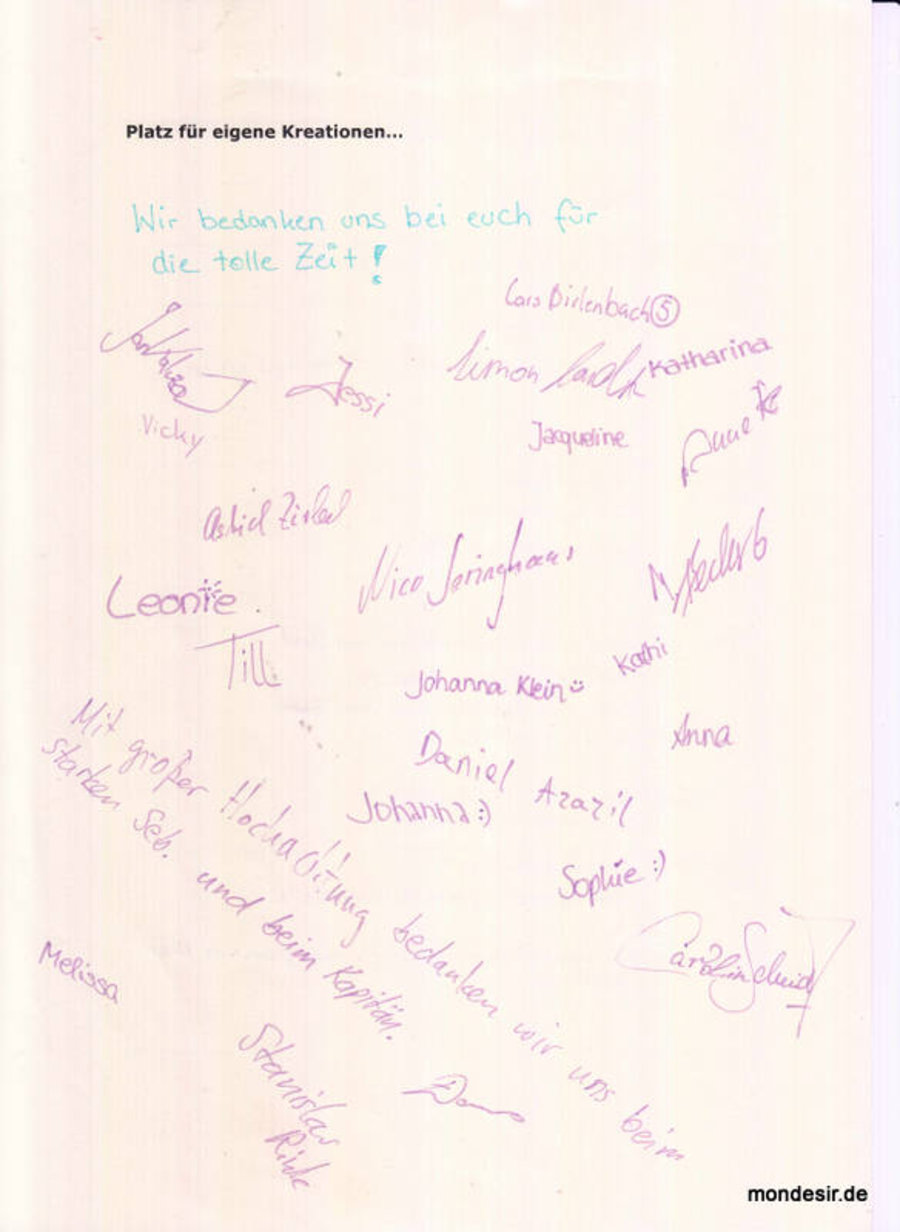 Platz für eigene Kreationen...
Wir bedanken uns bei euch für
die tolle Zeit!
Lars Birlenbach 5
Simon
Katharina
Jessi
Vicky
Jacqueline
Anne
Astrid
Nico Jeringhaus
Leonie
Till
Kathi
Johanna Klein
Anna
Daniel Arazil
Johanna :)
Sophie :)
Mit großer Hochachtung bedanken wir uns beim
starken Seb. und beim Kapitän.
Carolin Schmidt
Melissa
Stanislav
mondesir.de